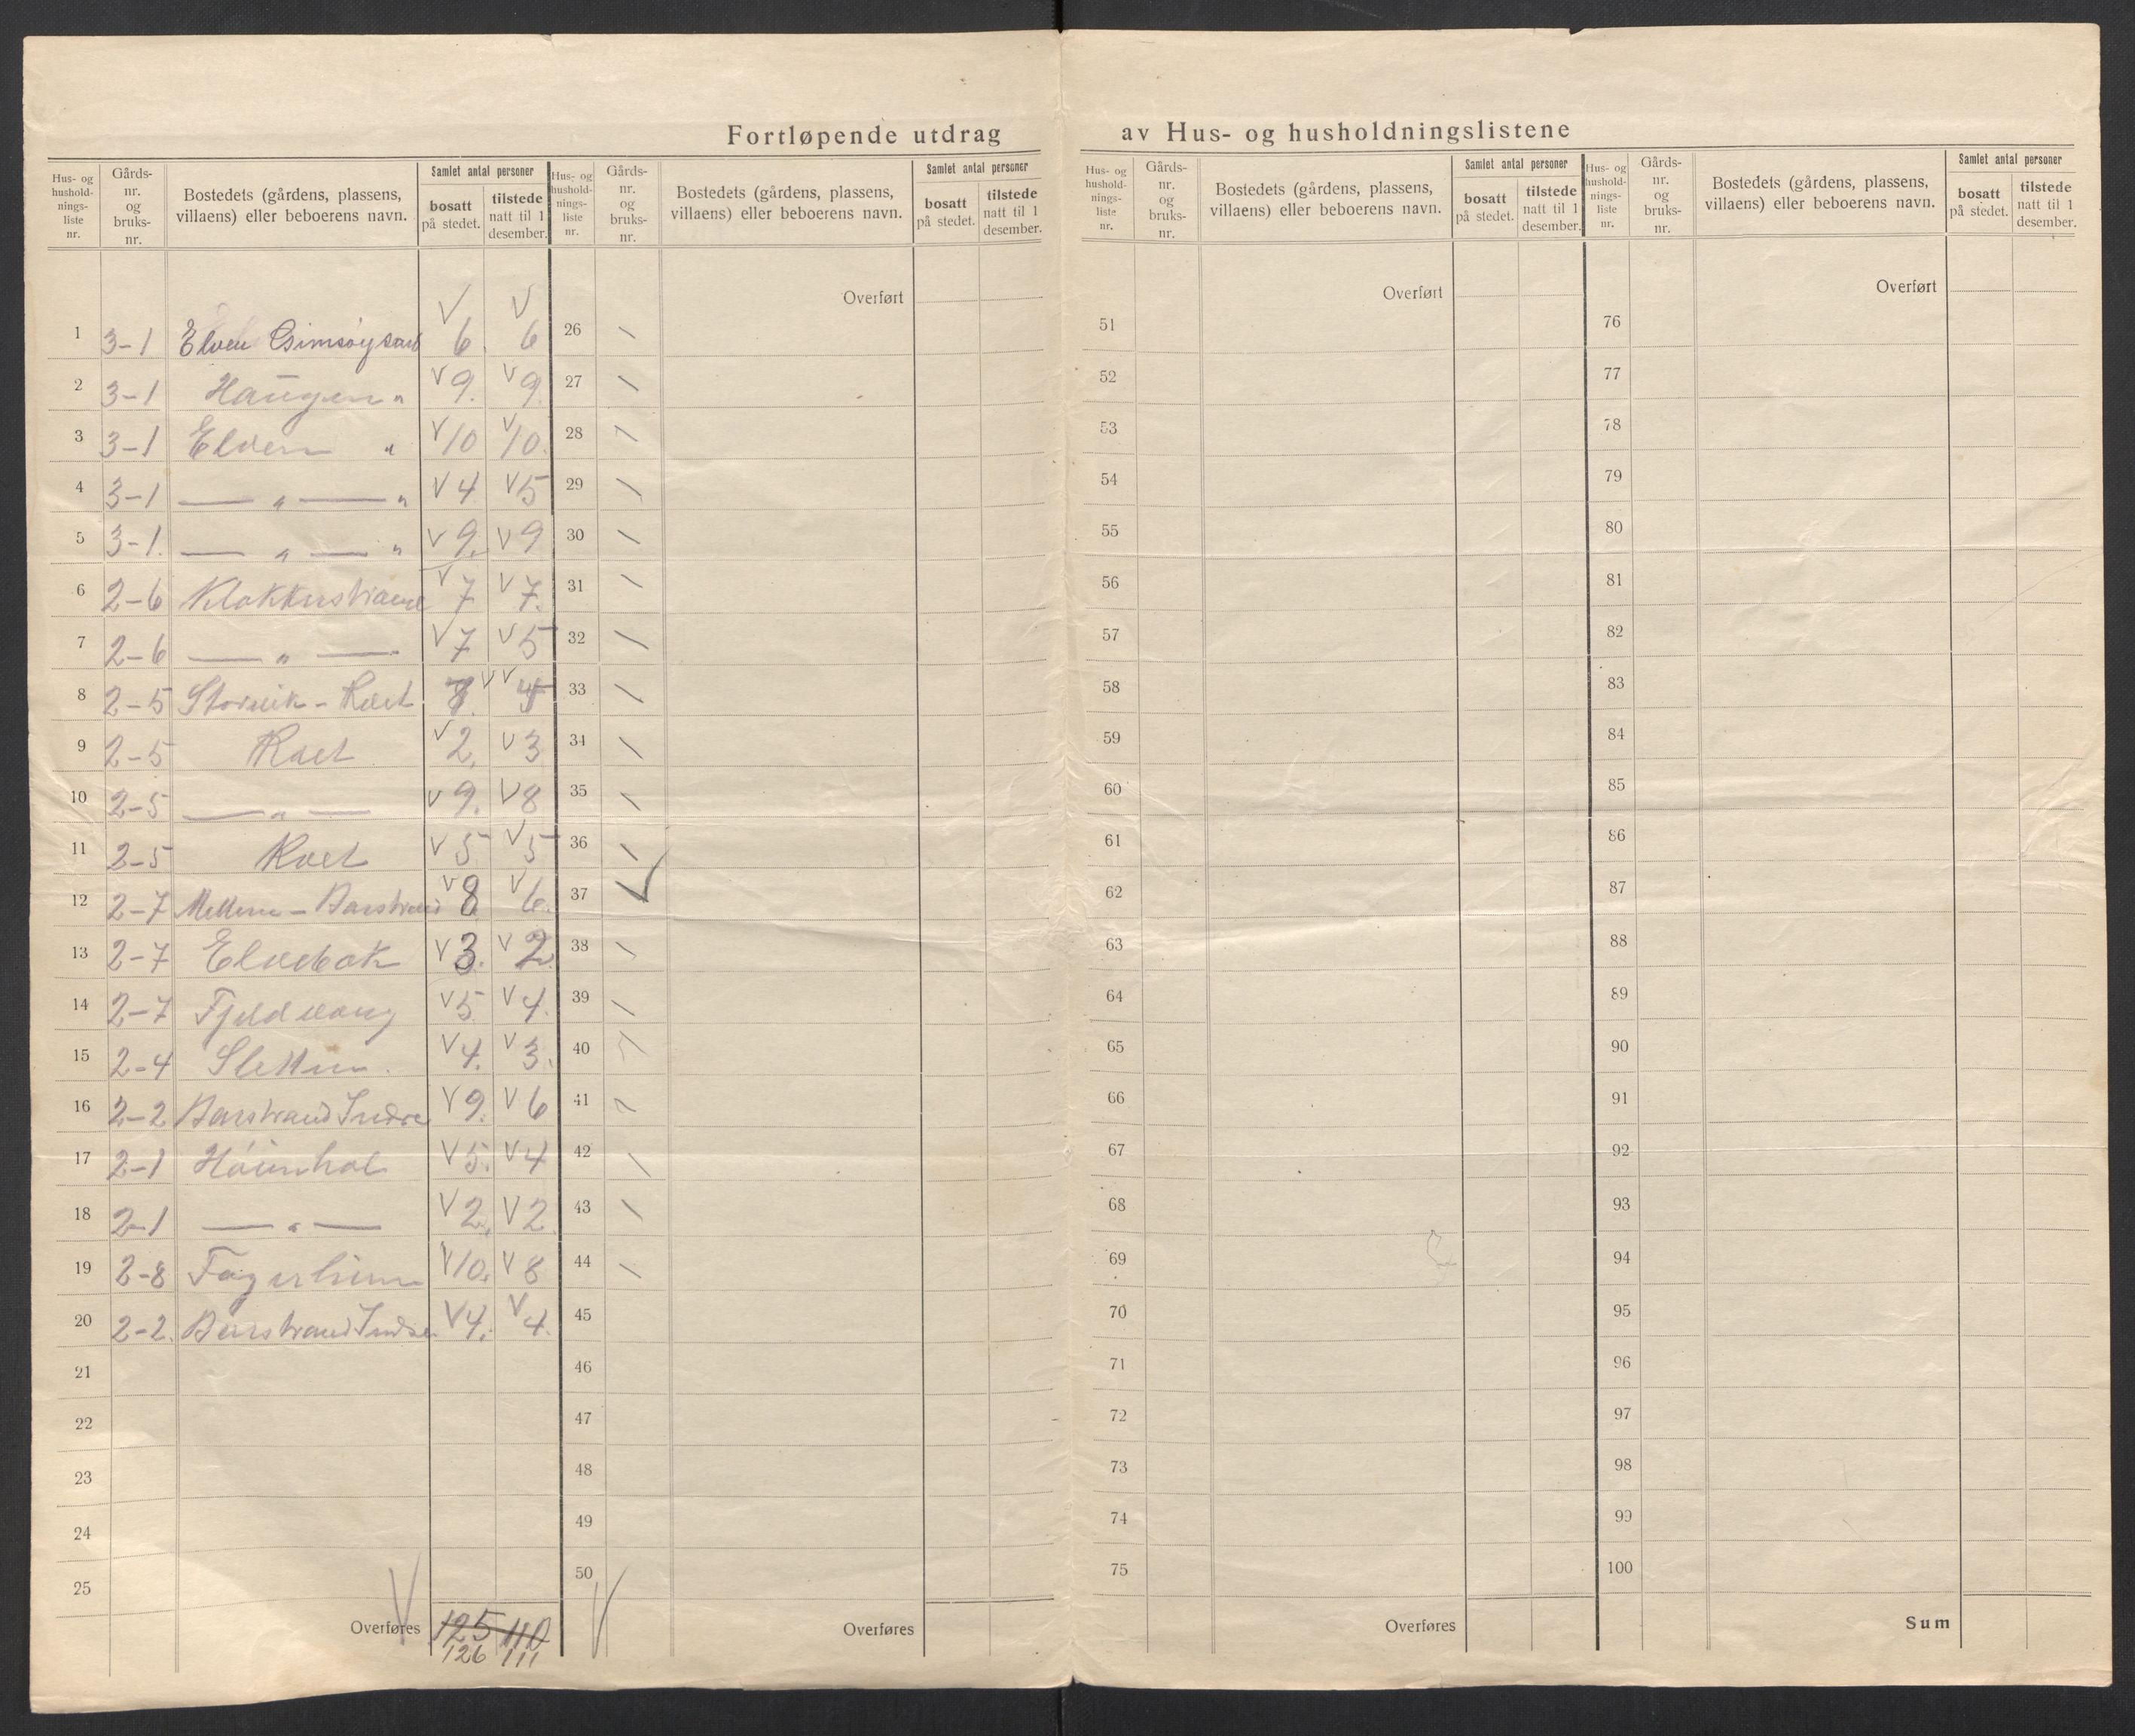 Fortløpende utdrag av Hus- og husholdningslistene
Hus- og hushold- nings- liste nr. Gårds- nr. og bruks- nr. Bostedets (gårdens, plassens, villaens) eller beboerens navn. Samlet antal personer bosatt på stedet. tilstede natt til 1 desember.
1 3-1 Elven Gimsøysand 6. 6
2 3-1 Haugen " 9. 9.
3 3-1 Elven " 10 10.
4 3-1 — " — " 4 5
5 3-1. — " — " 9. 9
6 2-6 Klokkerstrand 7 7.
7 2-6 — " — 7 5
8 2-5 Storvik - Roet
9 2-5 Roet 2. 3
10 2-5 — " — 9. 8
11 2-5 Roet 5 5
12 2-7 Barstrand 8 6.
13 2-7 Elvebak 3. 2.
14 2-7 Fjeldvang 5 4.
15 2-4 Sletten. 4. 3.
16 2-2 Barstrand Indre 9. 6
17 2-1 5. 4
18 2-1 — " — 2. 2
19 2-8 Fagerheim 10. 8
20 2-2. Barstrand Indre 4. 4.
21
22
23
24
25
Overføres 125 110
126 111
Hus- og hushold- nings- liste nr. Gårds- nr. og bruks- nr. Bostedets (gårdens, plassens, villaens) eller beboerens navn. Samlet antal personer bosatt på stedet. tilstede natt til 1 desember.
Overført
26
27
28
29
30
31
32
33
34
35
36
37
38
39
40
41
42
43
44
45
46
47
48
49
50
Overføres
Hus- og hushold- nings- liste nr. Gårds- nr. og bruks- nr. Bostedets (gårdens, plassens, villaens) eller beboerens navn. Samlet antal personer bosatt på stedet. tilstede natt til 1 desember.
Overført
51
52
53
54
55
56
57
58
59
60
61
62
63
64
65
66
67
68
69
70
71
72
73
74
75
Overføres
Hus- og hushold- nings- liste nr. Gårds- nr. og bruks- nr. Bostedets (gårdens, plassens, villaens) eller beboerens navn. Samlet antal personer bosatt på stedet. tilstede natt til 1 desember.
Overført
76
77
78
79
80
81
82
83
84
85
86
87
88
89
90
91
92
93
94
95
96
97
98
99
100
Sum